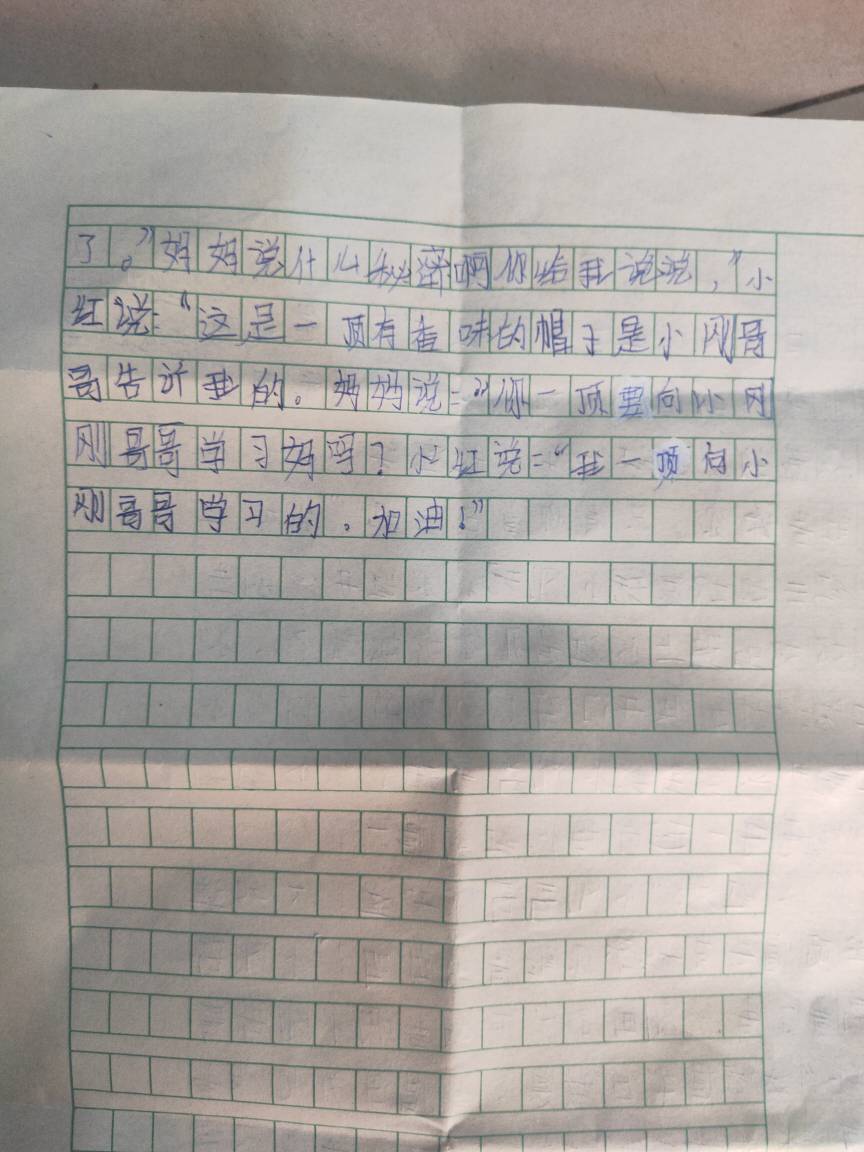 了。”妈妈说什么秘密啊你给我说说，”小
红说：“这是一顶有香味的帽子是小刚哥
哥告诉我的。妈妈说：“你一顶要向小刚
刚哥哥学习好吗？小红说：“我一顶向小
刚哥哥学习的，加油！”